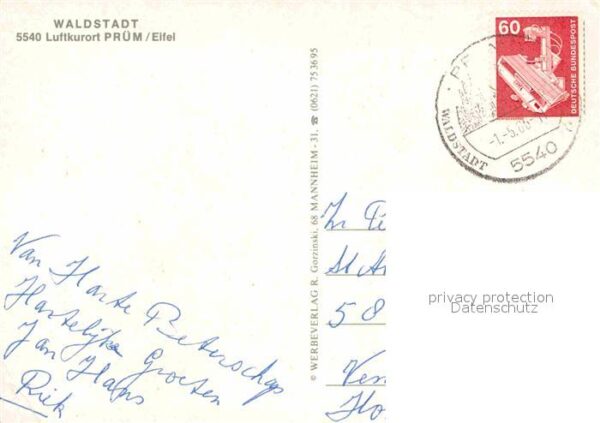 WALDSTADT
5540 Luftkurort PRÜM / Eifel
60
DEUTSCHE BUNDESPOST
WALDSTADT
5540
© WERBEVERLAG R. Gorzinski, 68 MANNHEIM - 31, ☎ (0621) 75 36 95
Van Harte Beterschap
Hartelijke Groeten
Jan Hans
Riek
St
58
Ven
privacy protection
Datenschutz